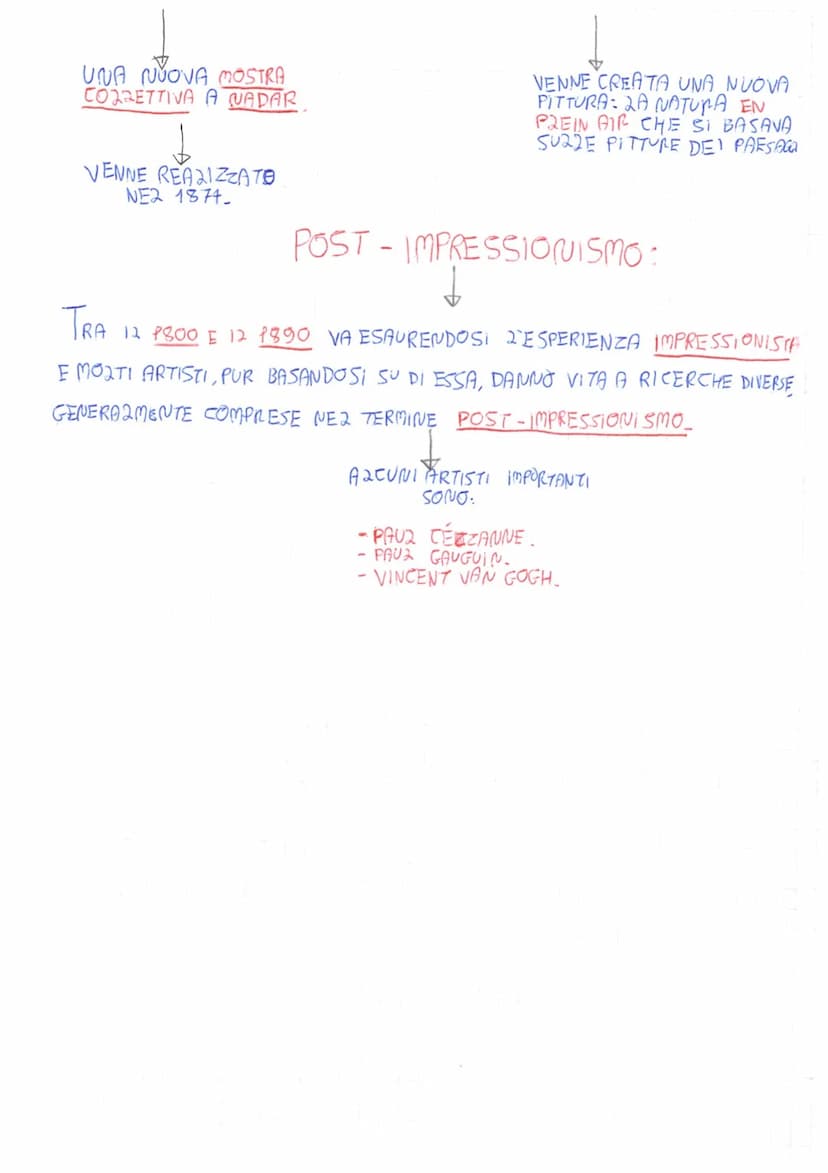 UNA NUOVA MOSTRA
COLLETTIVA A NADAR.
VENNE REALIZZATO
NEL 1874.
VENNE CREATA UNA NUOVA
PITTURA: LA NATURA EN
PLEIN AIR CHE SI BASAVA
SULLE PITTURE DEI PAESAGGI
POST - IMPRESSIONISMO:
TRA IL 1800 E IL 1890 VA ESAURENDOSI L'ESPERIENZA IMPRESSIONISTA
E MOLTI ARTISTI, PUR BASANDOSI SU DI ESSA, DANNO VITA A RICERCHE DIVERSE
GENERALMENTE COMPRESE NEL TERMINE POST-IMPRESSIONISMO.
ALCUNI ARTISTI IMPORTANTI
SONO:
- PAUL CÉZZANNE.
- PAUL GAUGUIN.
- VINCENT VAN GOGH.